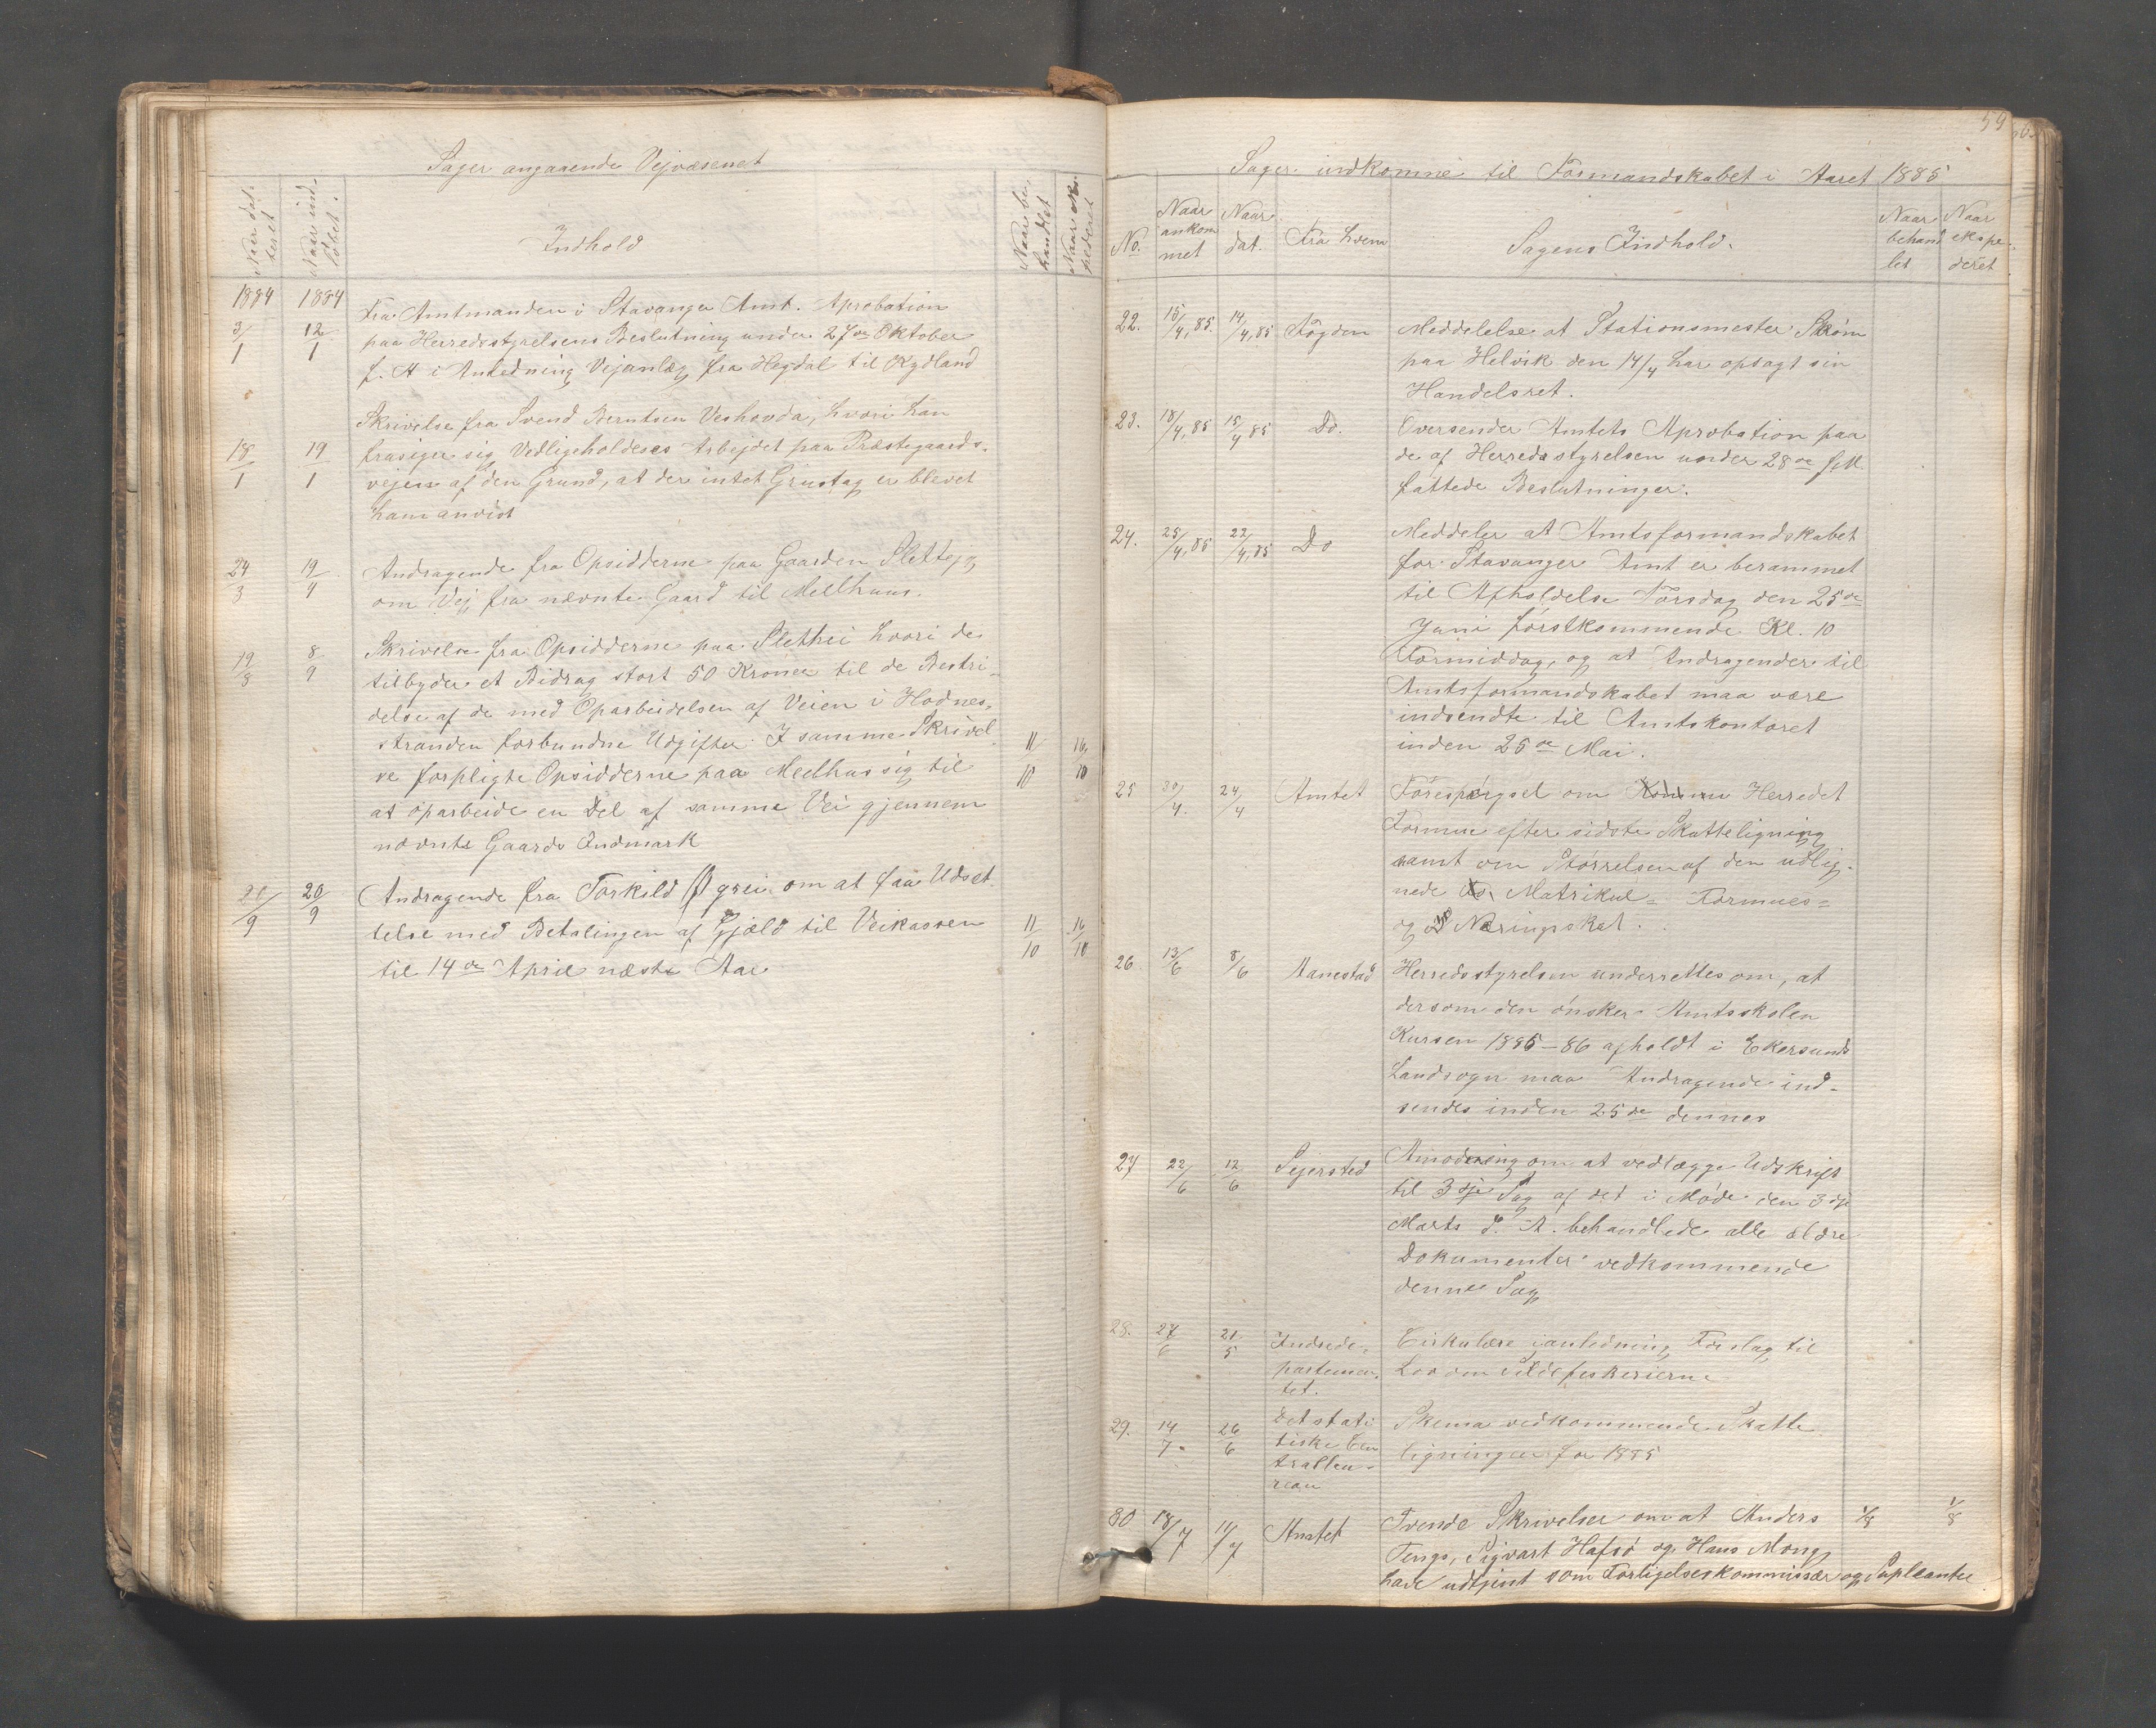 Sager angaaende Vejvæsenet
Naar dateret
Naar indløbet.
Indhold
Naar behandlet
Naar expederet
1884 1884
3/1 12/1 Fra Amtmanden i Stavanger Amt. Aprobation
paa Herredsstyrelsens Beslutning under 27de Oktober
f. A i Anledning Vejanlæg fra Hegdal til Rydland
Skrivelse fra Svend Berntsen Veshovda, hvori han
18/1 19/1 frasiger sig Vedligeholdeses Arbejdet paa Præstegaards-
vejen af den Grund, at der intet Grustag er blevet
ham anvist
24/3 19/4 Andragende fra Opsidderne paa Gaarden Slettejg
om Vej fra nævnte Gaard til Melhuus.
19/8 8/9 Skrivelse fra Opsidderne paa Slettei hvori de
tilbyder et Bidrag stort 50 Kroner til de Bestri-
delse af de med Oparbeidelsen af Veien i Hodnes-
stranden forbundne Udgifter. I samme Skrivel
se forpligte Opsidderne paa Melhus sig til 11/10 16/10
at oparbeide en Del af samme Vei gjennem
nævnte Gaards Indmark
20/9 20/9 Andragende fra Torkild Øgrei om at faa Udset
telse med Betalingen af Gjæld til Veikassen 11/10 16/10
til 14de April næste Aar
59
Sager indkomne til Formandskabet i Aaret 1885
No.
Naar ankommet
Naar dat.
Fra hvem
Sagens Indhold.
Naar behandlet
Naar ekspederet
22. 15/4, 85. 14/4, 85 Fogden Meddelelse at Stationsmester Strøm
paa Helvik den 14/4 har opsagt sin
Handelsret.
23. 18/4, 85 15/4 85 Do. Oversender Amtets Aprobation paa
de af Herredsstyrelsen under 28de f. M.
fattede Beslutninger.
24. 25/4, 85 22/4, 85 Do Meddeler at Amtsformandskabet
for Stavanger Amt er berammet
til Afholdelse Torsdag den 25de
Juni førstkommende Kl. 10
Formiddag, og at Andragender til
Amtsformandskabet maa være
indsendte til Amtskontoret
inden 25de Mai.
25 30/4. 24/4 Amtet Forespørgsel om Herredet
Formue efter sidste Skatteligning
samt om Størrelsen af den udlig-
nede Matrikul- Formues-
og Næringsskat.
26 13/6 8/6 Aanestad Herredsstyrelsen underrettes om, at
dersom den ønsker Amtsskolen
Kursen 1885-86 afholdt i Ekersunds
Landsogn maa Andragende ind-
sendes inden 25de dennes
27 22/6 12/6 Sejersted Anmodning om at vedlægge Udskrift
til 3dje Sag af det i Møde den 3dje
Marts d. A. behandlede alle ældre
Dokumenter vedkommende
denne Sag
28. 27/6 21/5 Indrede- Cirkulære ianledning Forslag til
partemen- Lov om Sildefiskerierne
tet.
29. 14/7. 26/6 Det stati Skema vedkommende Skatte
tiske Cen ligningen for 1885
tralbu-
reau
30 18/7 11/7 Amtet Tvende Skrivelser om at Anders 1/8 1/8
Tengs, Sigvart Hafsø og Hans Mong
have udtjent som Forligelseskommissær og Supleanter